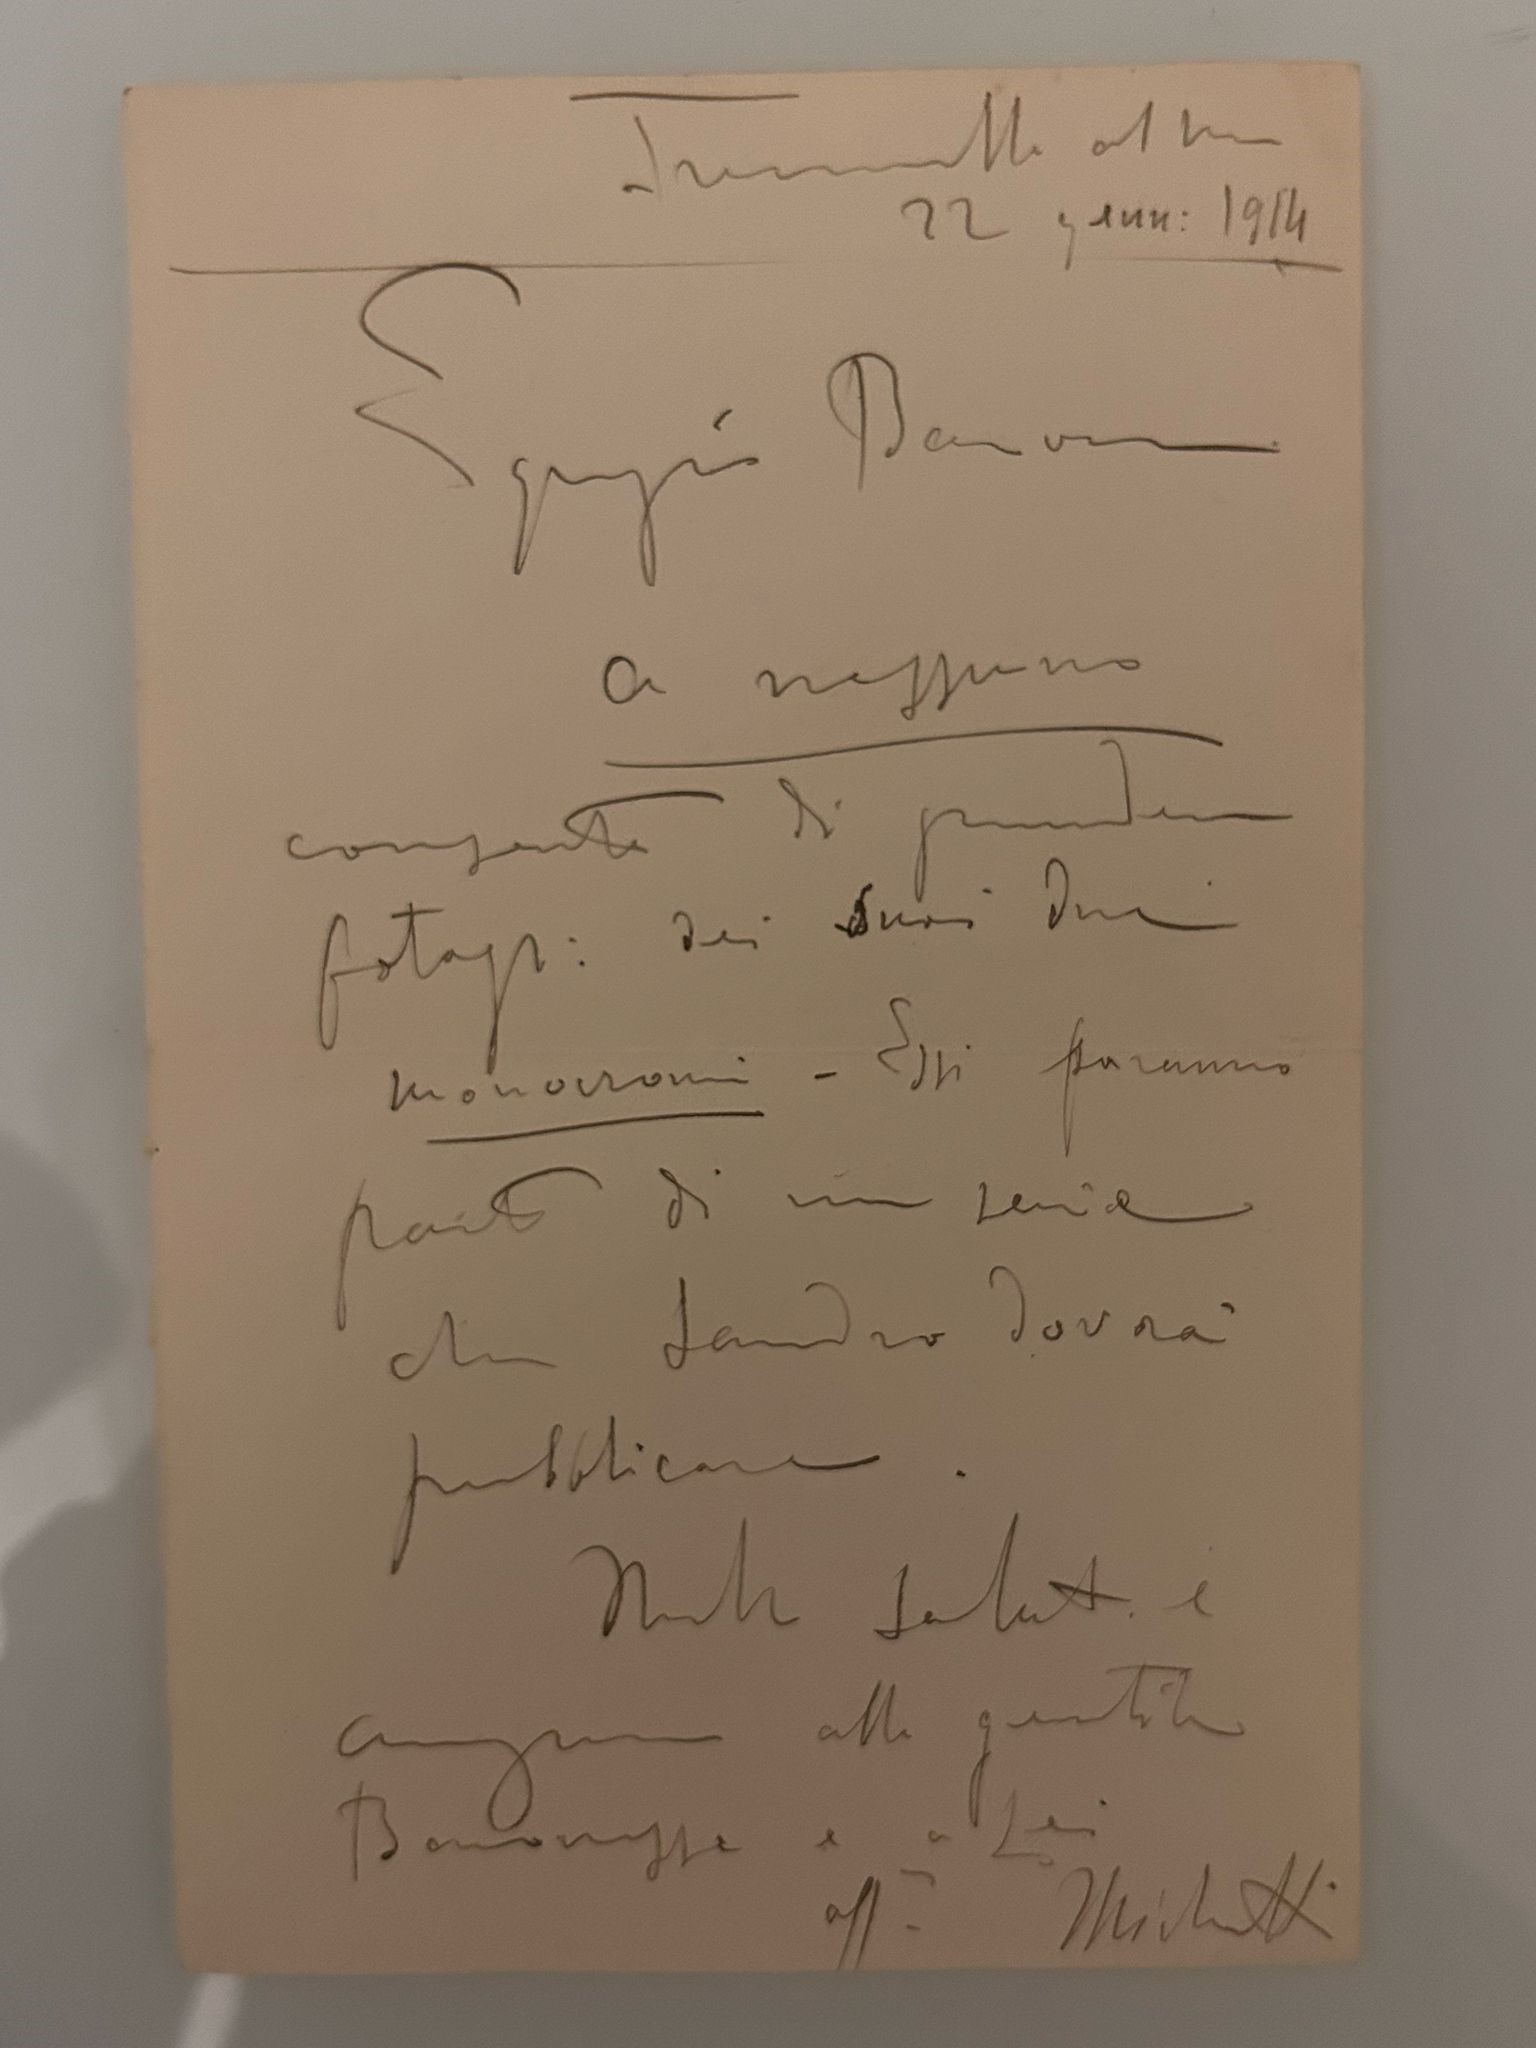 Francavilla al Mare
22 genn: 1914
Egregio Barone
a nessuno
consente di prendere
fotogr: dei suoi due
monocromi - Essi faranno
parte di una serie
che Sandro dovrà
pubblicare.
Molti saluti e
auguri alla gentile
Baronessa e a Lei
aff.mo Michetti